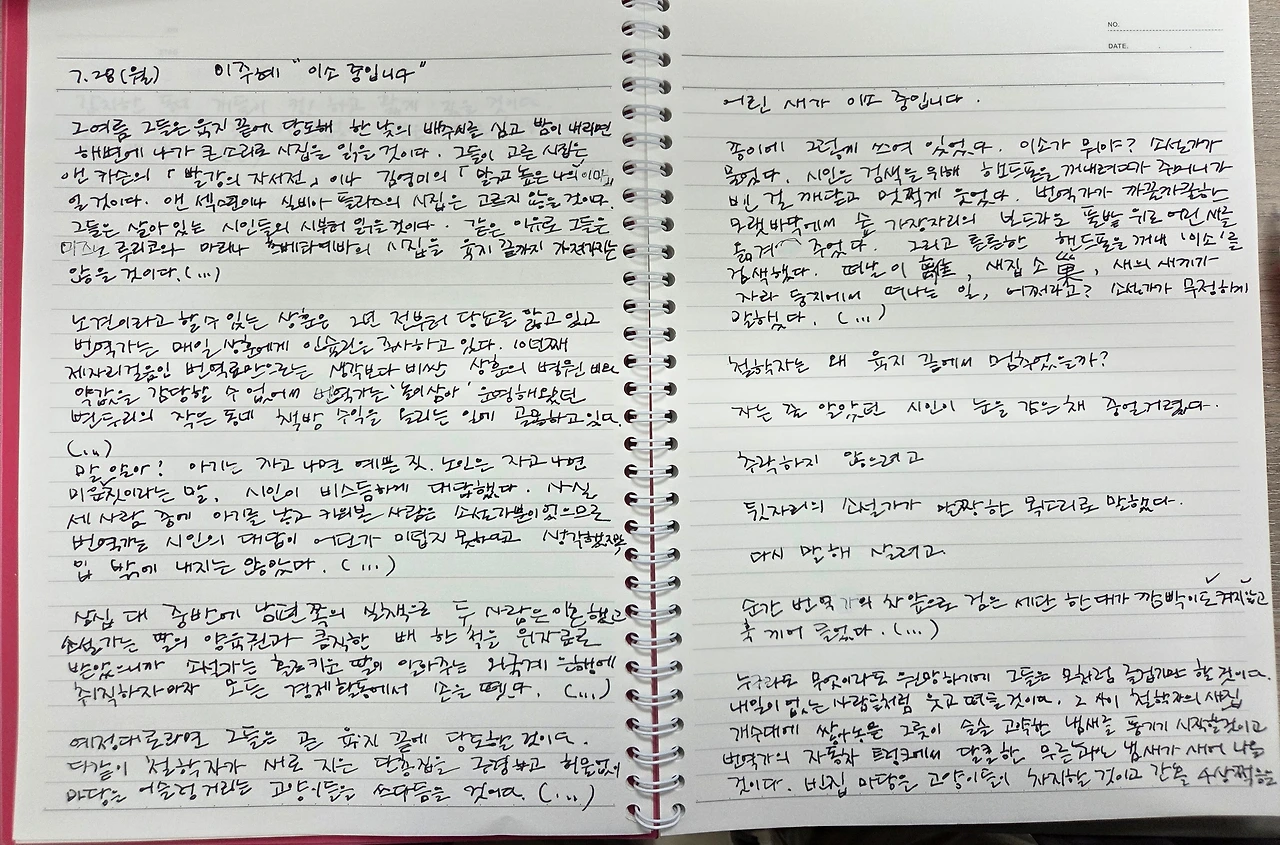 7.28(월) 이주혜 "이소 중입니다"
그 여름 그들은 육지 끝에 당도해 한 낮의 배추씨를 심고 밤이 내리면
해변에 나가 큰 소리로 시집을 읽을 것이다. 그들이 고른 시집은
앤 카슨의 「빨강의 자서전」이나 김영미의 「맑고 높은 나의 이마」
일 것이다. 앤 섹스턴이나 실비아 플라스의 시집은 고르지 않을 것이다.
그들은 살아 있는 시인들의 시부터 읽을 것이다. 같은 이유로 그들은
미즈노 루리코와 마리나 츠베타예바의 시집을 육지 끝까지 가져가지는
않을 것이다. (...)
노견이라고 할 수 있는 상훈은 2년 전부터 당뇨를 앓고 있고
번역가는 매일 상훈에게 인슐린을 주사하고 있다. 10년째
제자리걸음인 번역료만으로는 생각보다 비싼 상훈의 병원비와
약값을 감당할 수 없어서 번역가는 '놀이삼아' 운영해왔던
변두리의 작은 동네 책방 수익을 올리는 일에 골몰하고 있다.
(...)
말 알아? 아기는 자고 나면 예쁜 짓. 노인은 자고 나면
미운짓이라는 말, 시인이 비스듬하게 대답했다. 사실
세 사람 중에 아기를 낳고 키워본 사람은 소설가뿐이었으므로
번역가는 시인의 대답이 어딘가 미덥지 못하다고 생각했지만
입 밖에 내지는 않았다. (...)
삼십 대 중반에 남편 쪽의 실책으로 두 사람은 이혼했고
소설가는 딸의 양육권과 큼직한 배 한 척을 위자료로
받았으니까 소설가는 홀로 키운 딸이 알아주는 외국계 은행에
취직하자마자 모든 경제활동에서 손을 뗐다. (...)
예정대로라면 그들은 곧 육지 끝에 당도할 것이다.
다같이 철학자가 새로 지은 단층집을 구경하고 허물없이
마당을 어슬렁거리는 고양이들을 쓰다듬을 것이다. (...)
NO.
DATE.
어린 새가 이소 중입니다.
종이에 그렇게 쓰여 있었다. 이소가 뭐야? 소설가가
물었다. 시인은 검색을 위해 핸드폰을 꺼내려다가 주머니가
빈 걸 깨닫고 멋쩍게 웃었다. 번역가가 까끌까끌한
모랫바닥에서 숲 가장자리의 보드라운 풀밭 위로 어린 새를
옮겨 주었다. 그리고 튼튼한 핸드폰을 꺼내 '이소'를
검색했다. 떠날 이 離, 새집 소 巢, 새의 새끼가
자라 둥지에서 떠나는 일, 어쩌라고? 소설가가 무정하게
말했다. (...)
철학자는 왜 육지 끝에서 멈추었을까?
자는 줄 알았던 시인이 눈을 감은 채 중얼거렸다.
추락하지 않으려고
뒷자리의 소설가가 말짱한 목소리로 말했다.
다시 말해 살려고.
순간 번역가의 차 앞으로 검은 세단 한 대가 깜박이도 켜지 않고
훅 끼어 들었다. (...)
누구라도 무엇이라도 원망하기에 그들은 모처럼 즐겁기만 할 것이다.
내일이 없는 사람들처럼 웃고 떠들 것이다. 그 사이 철학자의 새집
개수대에 쌓아놓은 그릇이 슬슬 고약한 냄새를 풍기기 시작할것이고
번역가의 자동차 트렁크에서 달콤한 무른 과일 냄새가 새어 나올
것이다. 빈집 마당은 고양이들이 차지할 것이고 간혹 수상쩍은